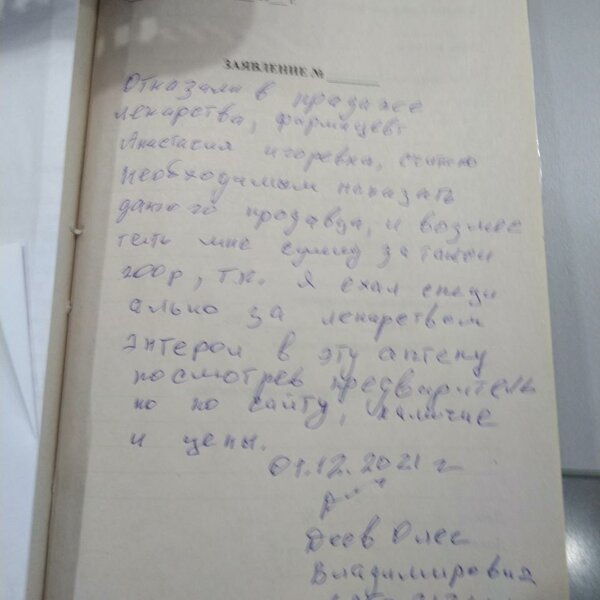 ЗАЯВЛЕНИЕ № ________
Отказали в продаже
лекарства, фармацевт
Анастасия игоревна, считаю
необходимым наказать
данного продавца, и возмес
тить мне сумму за такси
200р, т.к. Я ехал специ
ально за лекарством
Энтерол в эту аптеку
посмотрев предваритель
но по сайту, наличие
и цены.
01.12.2021 г
Деев Олег
Владимирович